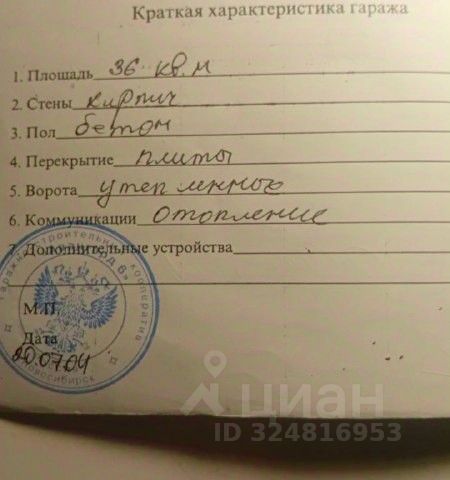 Краткая характеристика гаража
1. Площадь 36 кв.м
2. Стены кирпич
3. Пол бетон
4. Перекрытие плиты
5. Ворота утепленные
6. Коммуникации отопление
7. Дополнительные устройства
М.П.
Дата
20.07.04
Новосибирск
циан
ID 324816953